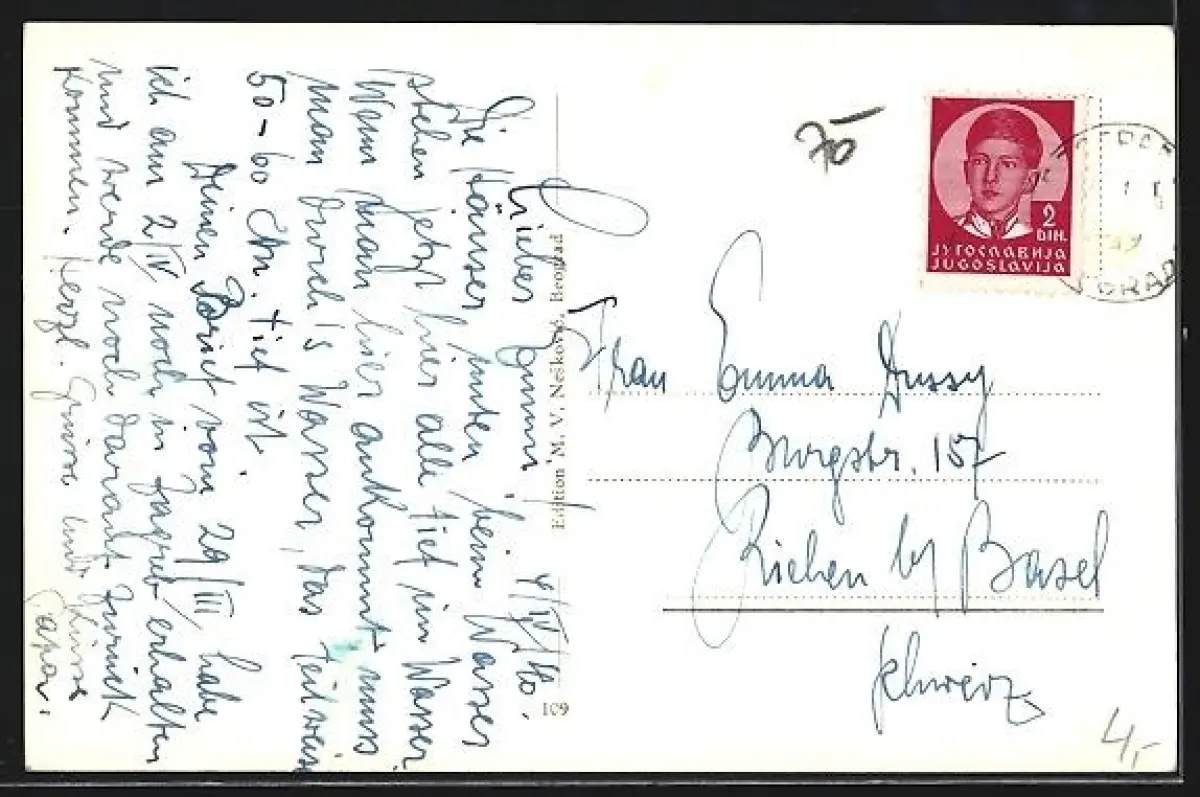 Lieber Emmi! 4/IV 40.
Die Häuser unten beim Wasser
stehen jetzt hier alle tief im Wasser
Wenn man hier ankommt muss
man durch's Wasser, das teilweise
50-60 Cm. tief ist.
Deinen Brief vom 29/III habe
ich am 2/IV noch in Zagreb erhalten
und werde noch darauf zurück
kommen. Herzl. Grüsse und Küsse
Papa.
Edition M. V. Nešković, Beograd
109
70-
2
DIN.
ЈУГОСЛАВИЈА
JUGOSLAVIJA
GRAD
Frau Emma Dussy
Burgstr. 157
Riehen b/ Basel
Schweiz
4,-